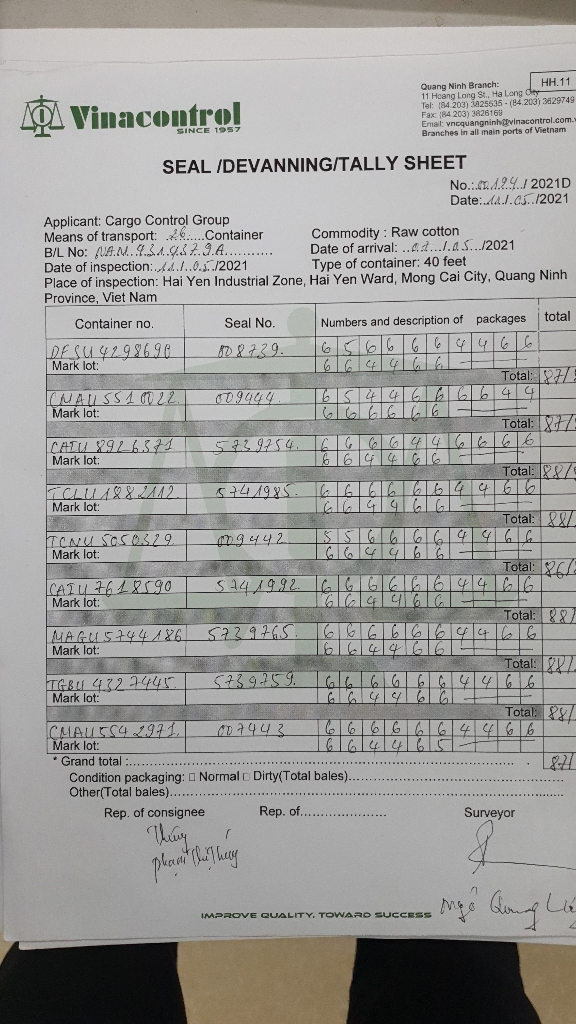 Vinacontrol
SINCE 1957
HH.11
Quang Ninh Branch:
11 Hoang Long St., Ha Long City
Tel: (84.203) 3825535 - (84.203) 3629749
Fax: (84.203) 3826169
Email: vncquangninh@vinacontrol.com.
Branches in all main ports of Vietnam
SEAL /DEVANNING/TALLY SHEET
No.: 00194 / 2021D
Date: 11/.05./2021
Applicant: Cargo Control Group
Means of transport: 26 Container
Commodity : Raw cotton
B/L No: NAM.4314379A
Date of arrival: /.05./2021
Date of inspection: 11/.05/2021
Type of container: 40 feet
Place of inspection: Hai Yen Industrial Zone, Hai Yen Ward, Mong Cai City, Quang Ninh
Province, Viet Nam
Container no. Seal No. Numbers and description of packages total
DFSU4298690 008739. 6 5 6 6 6 6 4 4 6 6
Mark lot: 6 6 4 4 6 6
Total: 87/
CMAU5510022 009444. 6 5 4 4 6 6 6 6 4 4
Mark lot: 6 6 6 6 6 6
Total: 87/
CAIU8926371 5739754. 6 6 6 6 4 4 6 6 6 6
Mark lot: 6 6 4 4 6 6
Total: 88/
TCLU1882112 5741985. 6 6 6 6 6 6 4 4 6 6
Mark lot: 6 6 4 4 6 6
Total: 88/
TCNU5050329 009442 5 5 6 6 6 6 4 4 6 6
Mark lot: 6 6 4 4 6 6
Total: 86/
CAIU7618590 5741992 6 6 6 6 6 6 4 4 6 6
Mark lot: 6 6 4 4 6 6
Total: 88/
MAGU5744186 5739765. 6 6 6 6 6 6 4 4 6 6
Mark lot: 6 6 4 4 6 6
Total: 88/
TGBU4327445. 5739759. 6 6 6 6 6 6 4 4 6 6
Mark lot: 6 6 4 4 6 6
Total: 88/
CMAU5542971. 007443 6 6 6 6 6 6 4 4 6 6
Mark lot: 6 6 4 4 6 5
* Grand total : 87/
Condition packaging: □ Normal □ Dirty(Total bales)
Other(Total bales)
Rep. of consignee Rep. of Surveyor
Thúy
phạm Thị Thúy
Ngô Quang
IMPROVE QUALITY, TOWARD SUCCESS